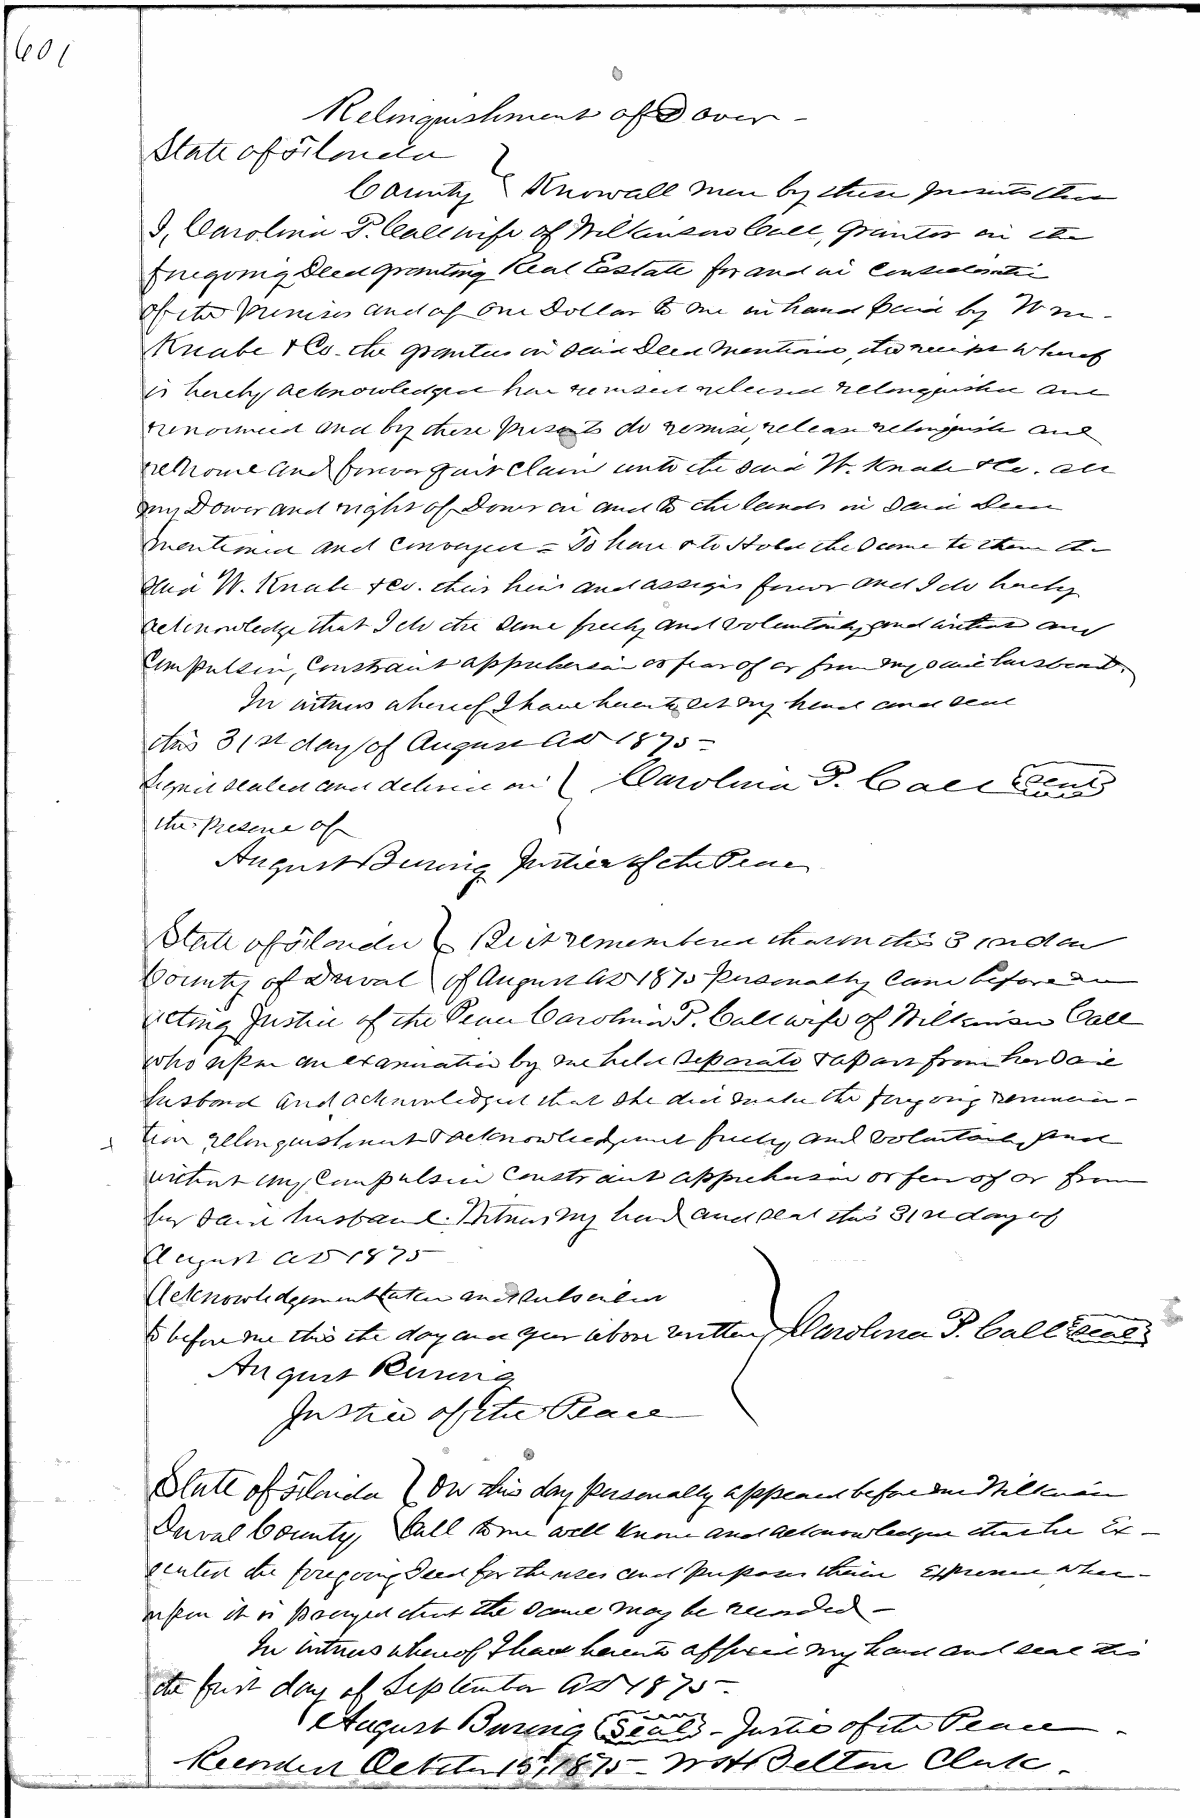 601
Relinquishment of Dower -
State of Florida
County } Know all men by these presents that
I, Carolina P. Call wife of Wilkinson Call, grantor in the
foregoing Deed granting Real Estate for and in consideration
of the premises and of one Dollar to me in hand paid by Wm.
Knabe & Co. the grantees in said Deed mentioned, the receipt whereof
is hereby acknowledged have remised released relinquished and
renounced and by these presents do remise, release relinquish and
renounce and forever quit claim unto the said W. Knabe & Co. all
my Dower and right of Dower in and to the lands in said Deed
mentioned and conveyed = To have & to Hold the same to them the
said W. Knabe & Co. their heirs and assigns forever and I do hereby
acknowledge that I do the same freely and voluntarily and without any
Compulsion, Constraint apprehension or fear of or from my said husband.
In witness whereof I have hereunto set my hand and seal
this 31st day of August AD 1875 -
Signed sealed and delivered in } Carolina P. Call (seal)
the presence of
August Buring Justice of the Peace
State of Florida } Be it remembered that on this 31st day
County of Duval } of August AD 1875 personally came before me
acting Justice of the Peace Carolina P. Call wife of Wilkinson Call
who upon an examination by me held separate & apart from her said
husband and acknowledged that she did make the foregoing renuncia-
tion, relinquishment & acknowledgment freely and voluntarily and
without any Compulsion Constraint apprehension or fear of or from
her said husband. Witness my hand and seal this 31st day of
August AD 1875
Acknowledgement taken and subscribed
to before me this the day and year above written } Carolina P. Call (seal)
August Buring
Justice of the Peace
State of Florida } On this day personally appeared before me Wilkinson
Duval County } Call to me well known and acknowledged that he Ex-
ecuted the foregoing Deed for the uses and purposes therein Expressed, where-
upon it is prayed that the same may be recorded -
In witness whereof I have hereunto affixed my hand and seal this
the first day of September AD 1875 -
August Buring (Seal) - Justice of the Peace -
Recorded October 15th, 1875 - W H Belton Clerk.